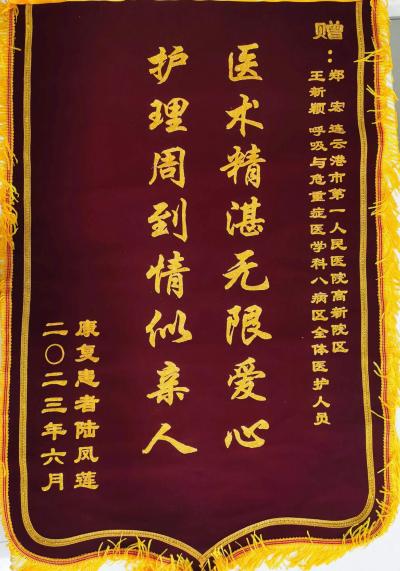 赠：
郑宏 连云港市第一人民医院高新院区
王新颖 呼吸与危重症医学科八病区全体医护人员
医术精湛无限爱心
护理周到情似亲人
康复患者陆凤莲
二〇二三年六月